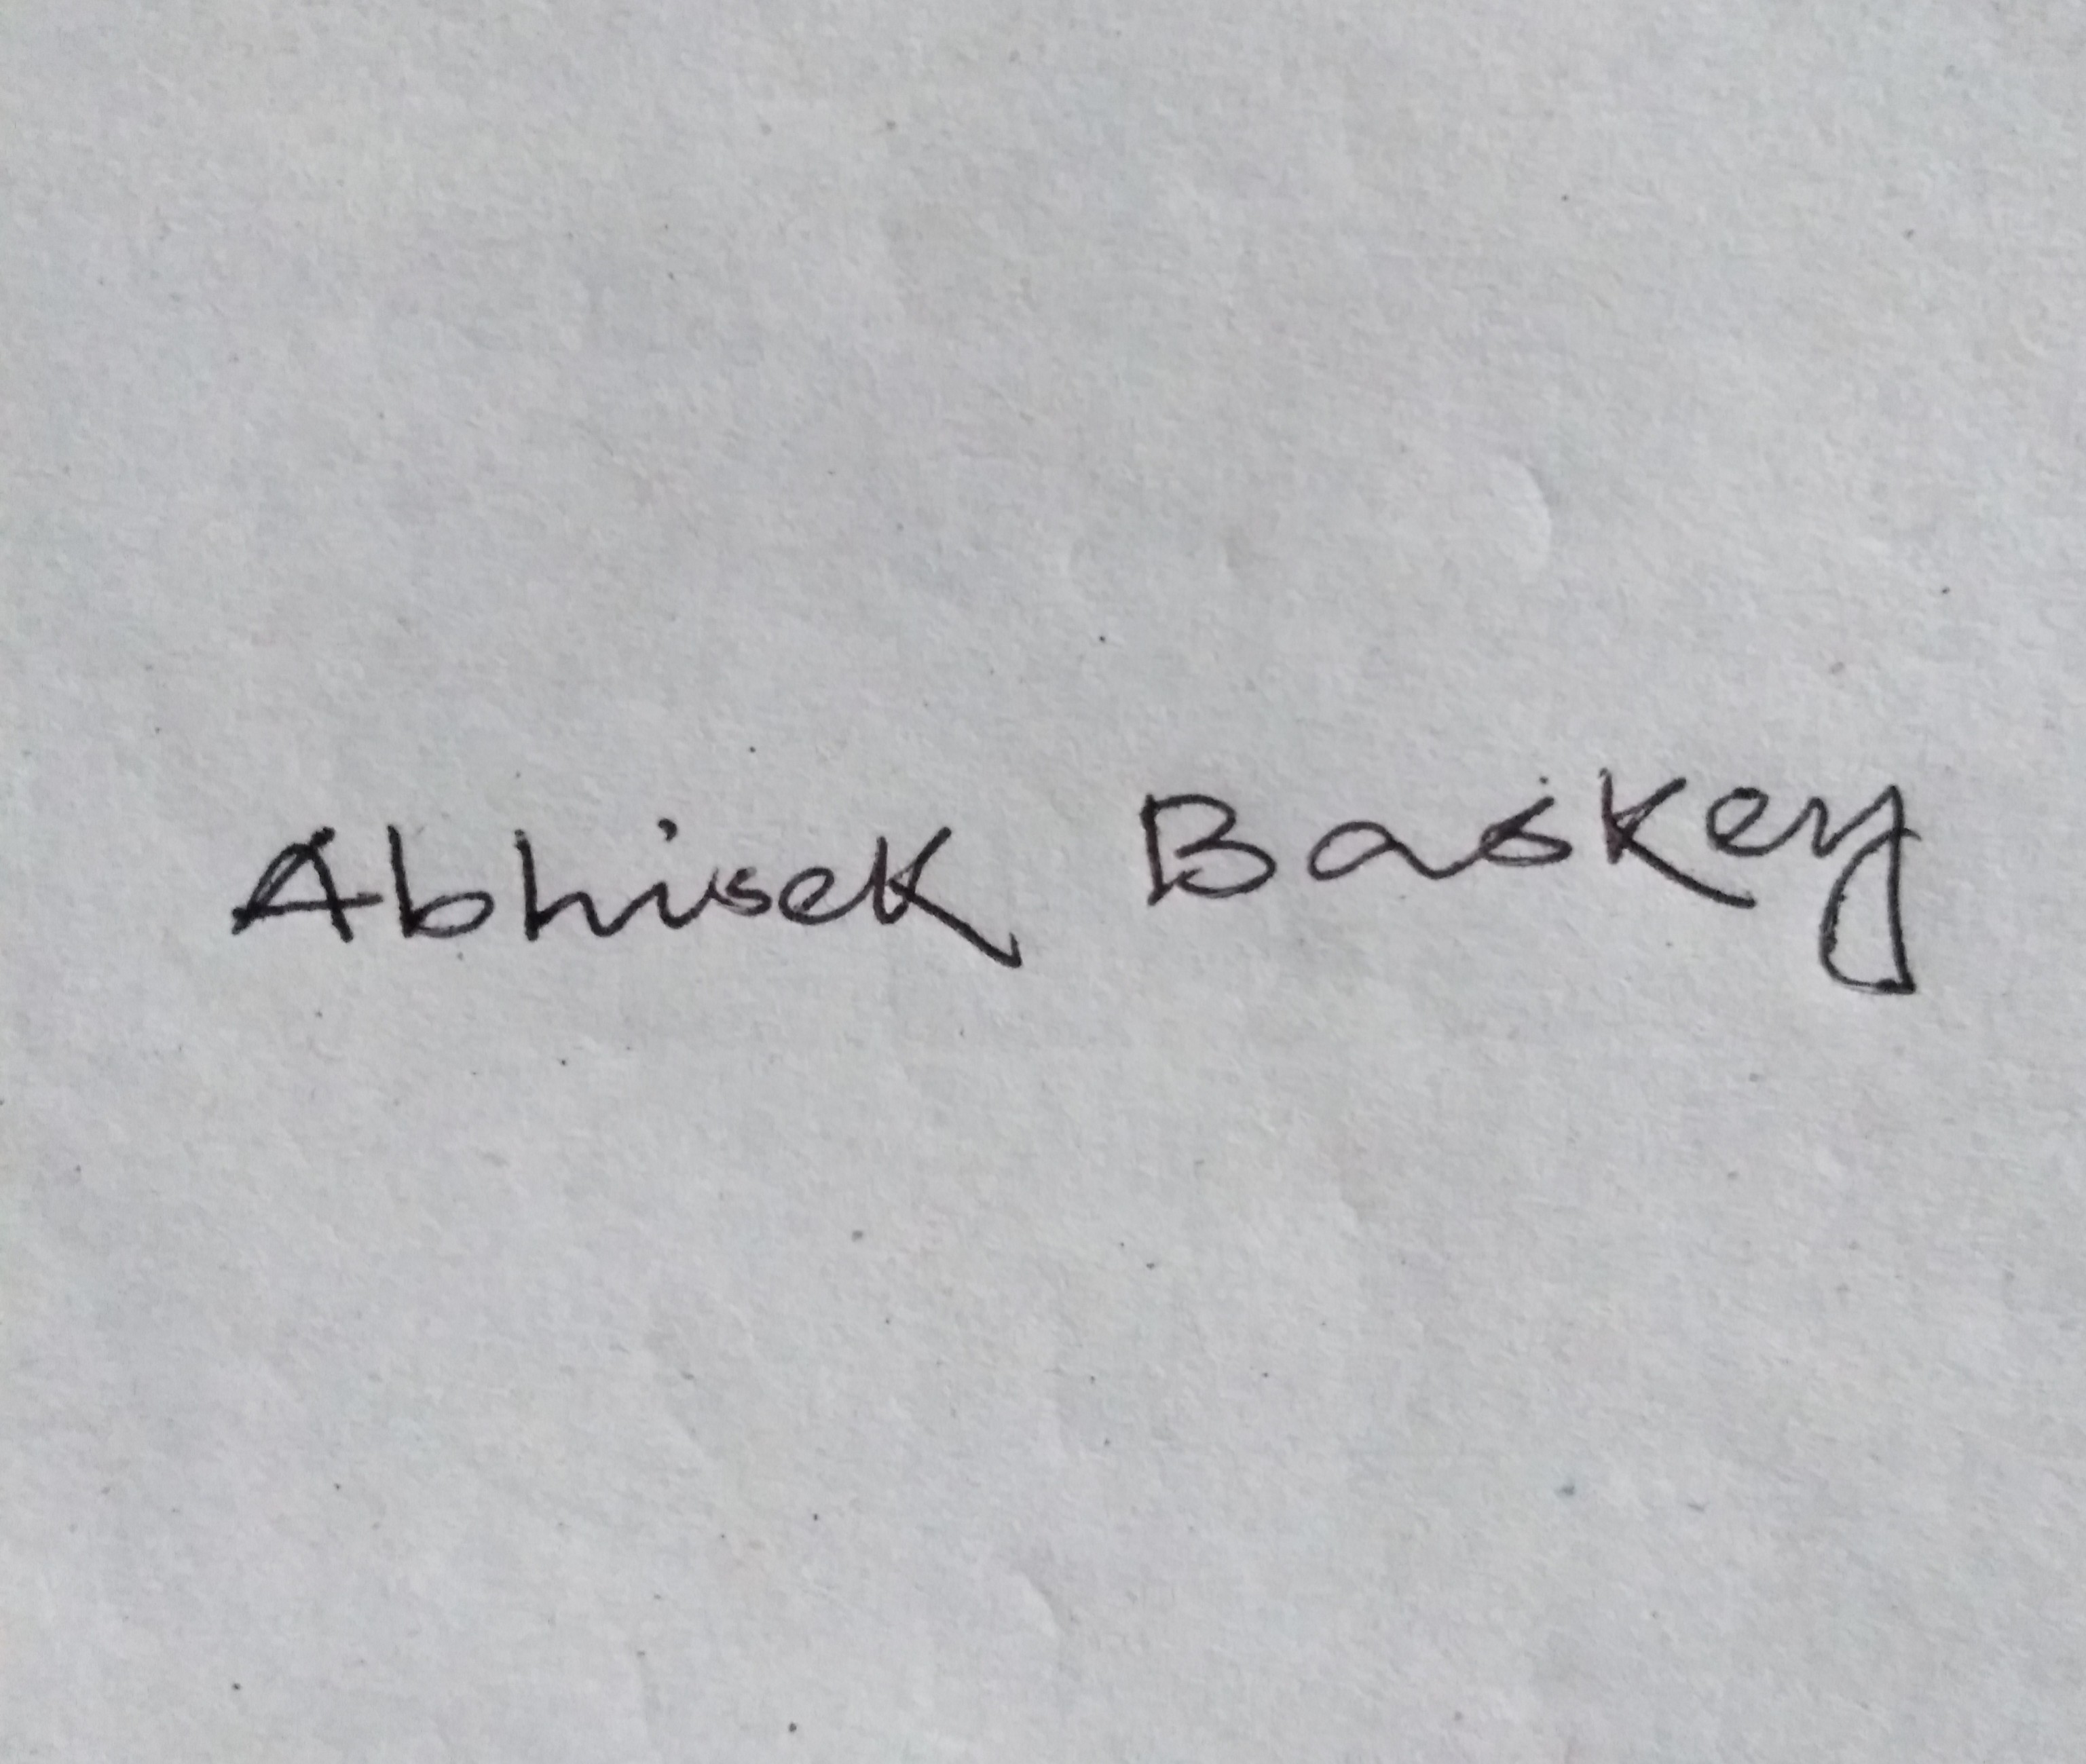 Abhisek Baskey